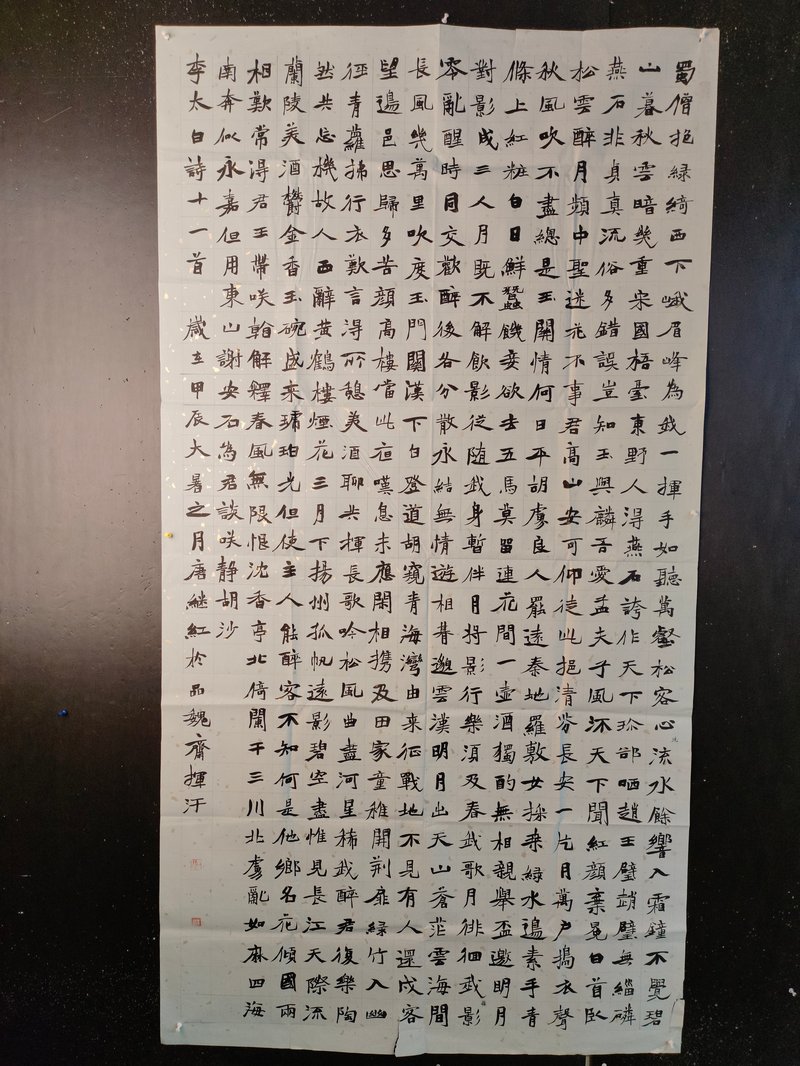 蜀僧抱綠綺西下峨眉峰為我一揮手如聽萬壑松客心流水餘響入霜鐘不覺碧
山暮秋雲暗幾重宋國梧臺東野人得燕石誇作天下珍郤哂趙王璧趙璧無緇磷
燕石非貞真流俗多錯誤豈知玉與麟吾愛孟夫子風流天下聞紅顏棄冕白首臥
松雲醉月頻中聖迷花不事君高山安可仰從此挹清芬長安一片月萬戶擣衣聲
秋風吹不盡總是玉關情何日平胡虜良人罷遠秦地羅敷女採桒綠水邊素手青
條上紅粧白日鮮蠶饑妾欲去五馬莫留連花間一壺酒獨酌無相親舉盃邀明月
對影成三人月既不解飲影從隨我身暫伴月將影行樂須及春我歌月徘徊我影
零亂醒時同交歡醉後各分散永結無情遊相朞邈雲漢明月出天山蒼茫雲海間
長風幾萬里吹度玉門關漢下白登道胡窺青海灣由来征戰地不見有人還戍客
望邊邑思歸多苦顏高樓當此夜嘆息未應閑相攜及田家童稚開荊扉綠竹入幽
徑青蘿拂行衣歡言得所憩美酒聊共揮長歌吟松風曲盡河星稀我醉君復樂陶
然共忘機故人西辭黃鶴樓煙花三月下揚州孤帆遠影碧空盡惟見長江天際流
蘭陵美酒鬱金香玉碗盛来琥珀光但使主人能醉客不知何是他鄉名花傾國兩
相歡常得君王帶咲看解釋春風無限恨沈香亭北倚闌干三川北虜亂如麻四海
南奔似永嘉但用東山謝安石為君談咲靜胡沙
李太白詩十一首 歲在甲辰大暑之月唐繼紅於品魏齋揮汗